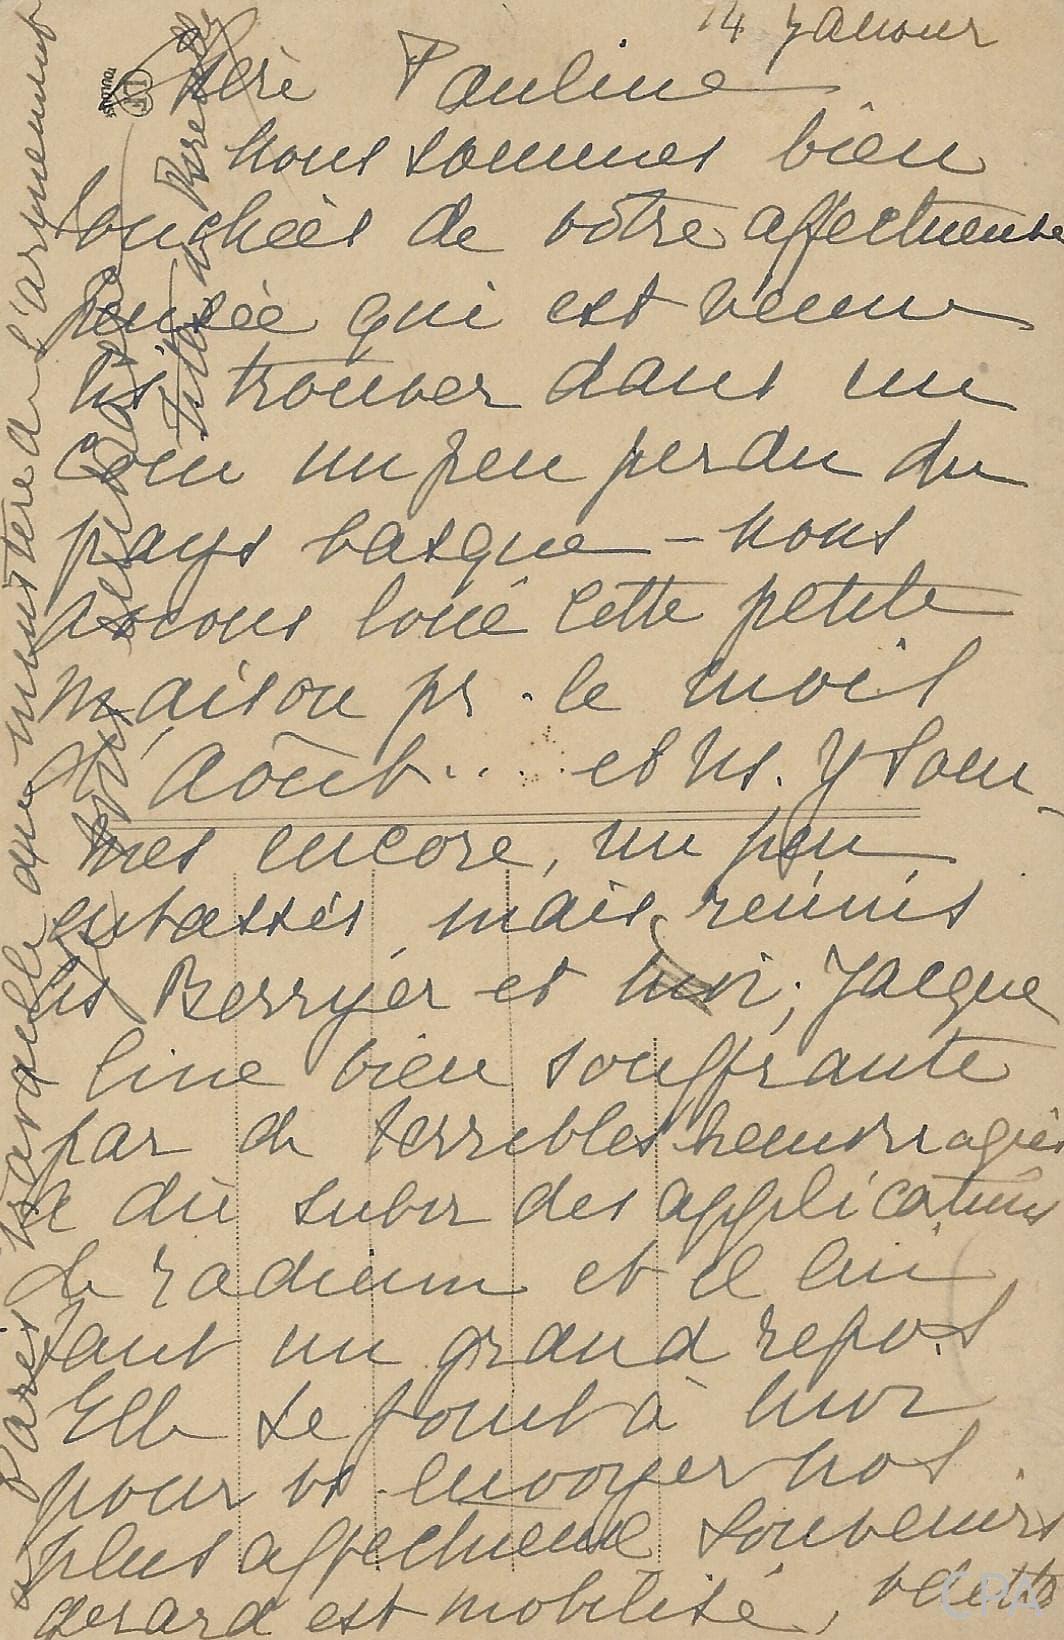 14 Janvier
Chère Pauline
nous sommes bien
touchées de votre affectueuse
pensée qui est venue
ns trouver dans un
coin un peu perdu du
pays basque - nous
avons loué cette petite
maison pr. le mois
d'août.... et ns. y som-
mes encore, un peu
entassés, mais réunis
les Berryer et moi; Jacque
line bien souffrante
par de terribles hemorragies
a dû subir des applications
de radium et il lui
faut un grand repos
Elle se joint à moi
pour vs envoyer nos
plus affectueux souvenirs
Gerard est mobilisé,
à Paris travaille au ministère de l'armement
TOULOUSE
CPA